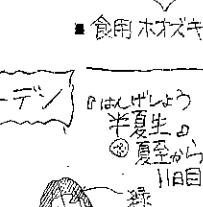 ■食用ホオズキ
ーデン
『はんげしょう
半夏生』
夏至から
11日目
緑